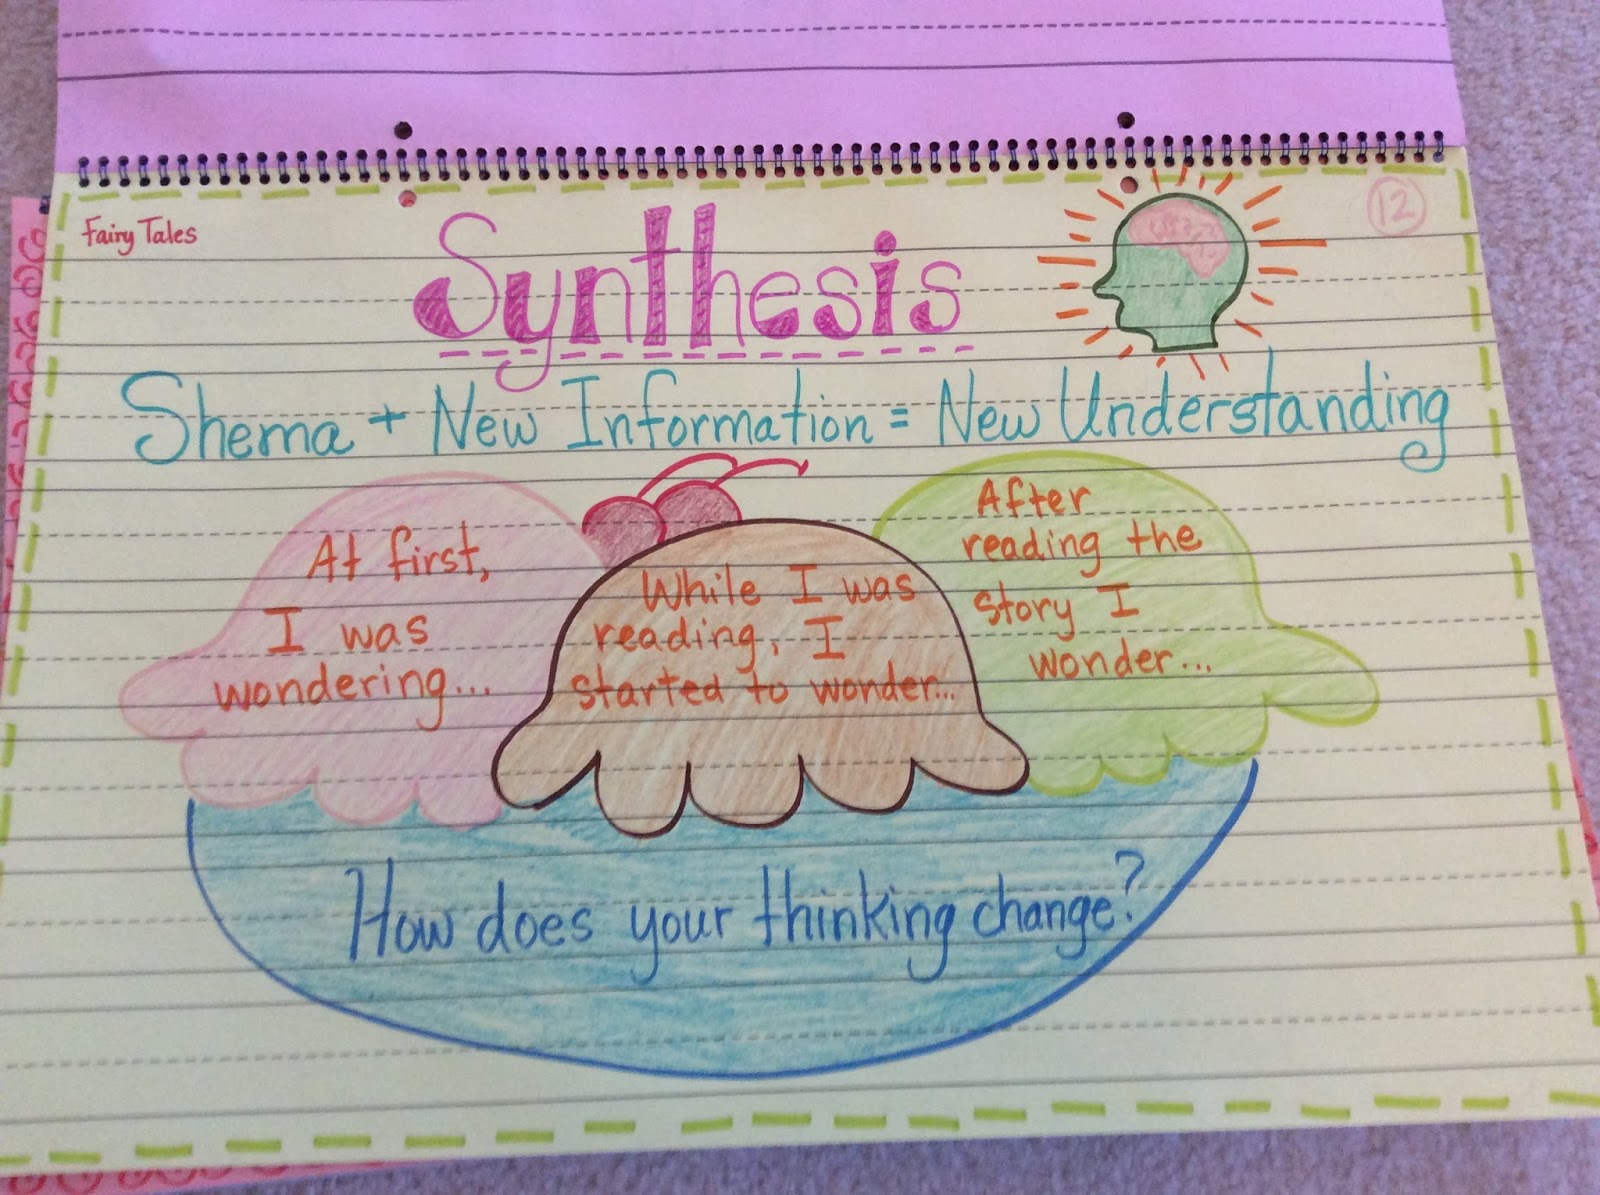 Fairy Tales
12
Synthesis
Shema + New Information = New Understanding
At first,
I was
wondering...
While I was
reading, I
started to wonder...
After
reading the
story I
wonder...
How does your thinking change?